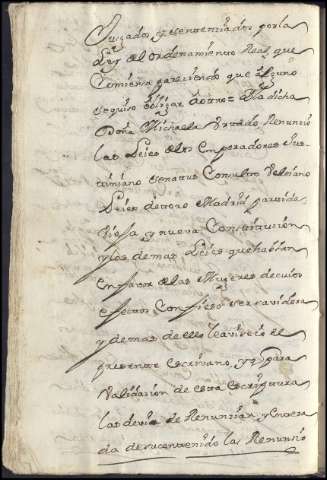 Juzgados y sentenciados por la
Ley del ordenamiento Real que
Comiensa pareciendo que alguno
se quiso obligar a otro = Y la dicha
Doña Michaela Vrtado Renuncio
las Leies de los Emperadores Jus-
tiniano senatus Consulto Veleiano
Leies de toro Madrid partida
Viefa y nueva Constitucion
y las demas Leies que hablan
en favor de las Mugeres de cuios
efectos Confieso ser savidora
y demas de ello la aviso el
presente escrivano, y q para
Validacion de esta escriptura
las devia de Renunciar y entera
da de su contenido las Renuncio